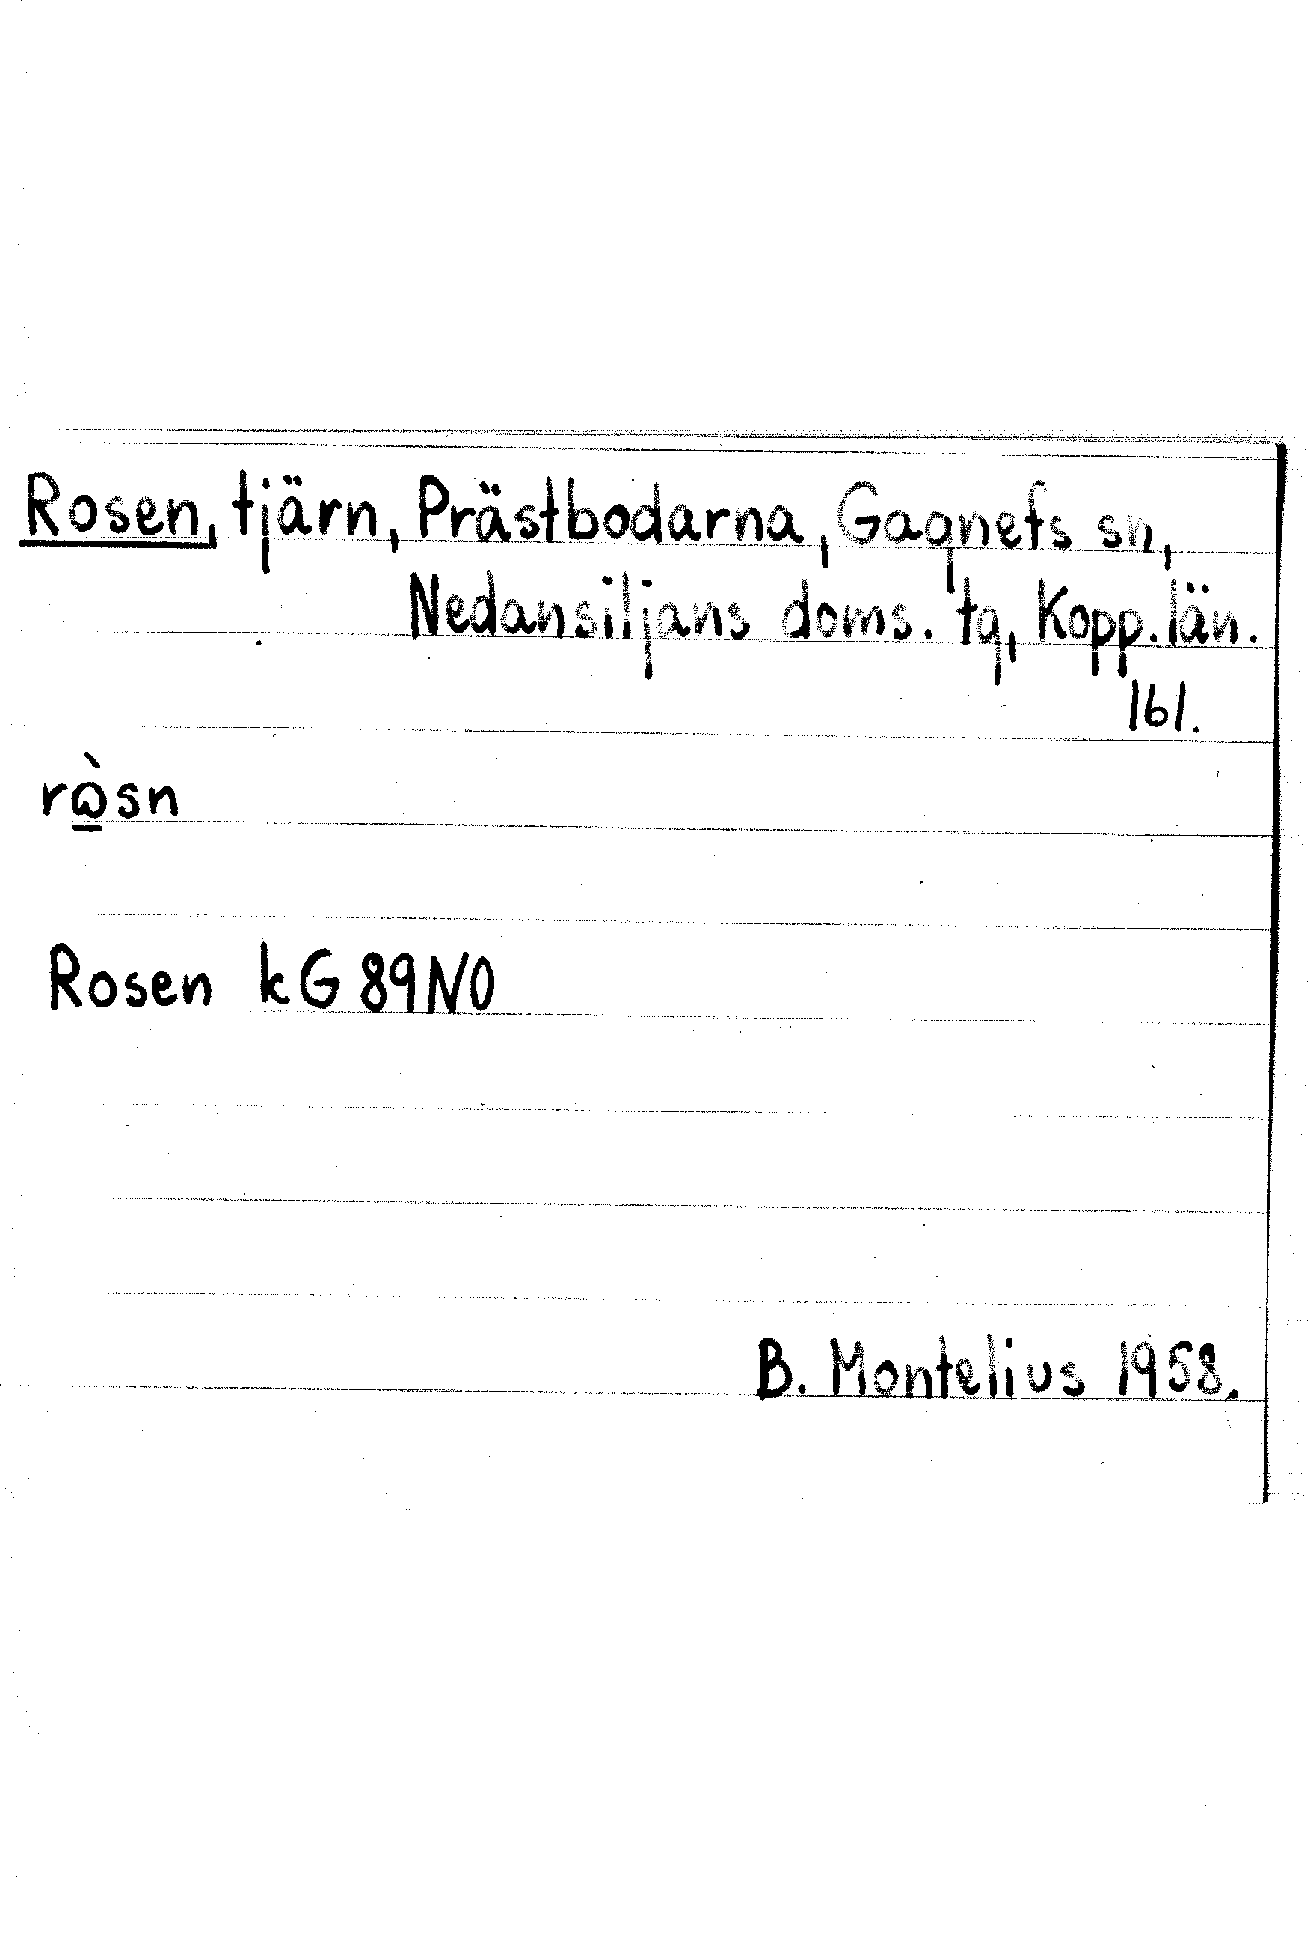 Rosen, tjärn, Prästbodarna, Gagnefs sn,
Nedansiljans doms. tg, Kopp. län.
161.
rὼ̲sn
Rosen kG 89 NO
B. Montelius 1958.